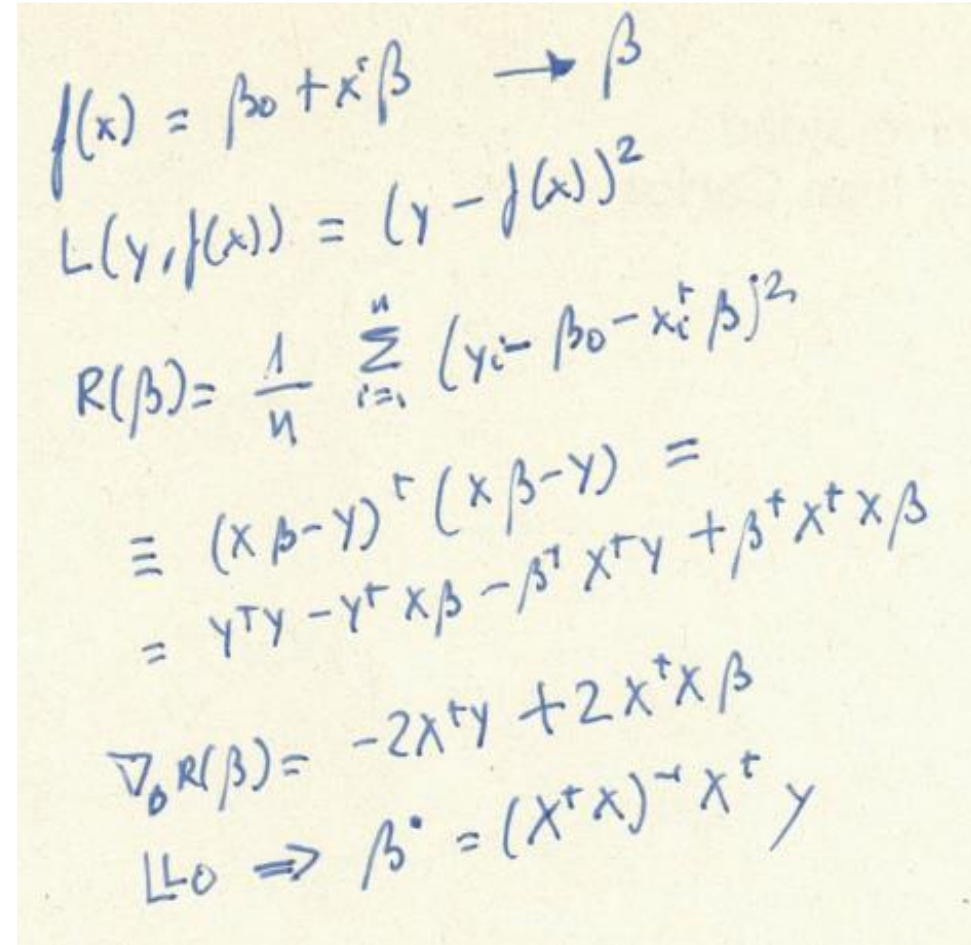 f(x) = β₀ + xᵗβ → β
L(y, f(x)) = (y - f(x))²
R(β) = 1/n Σᵢ₌₁ⁿ (yᵢ - β₀ - xᵢᵗ β)²
≡ (Xβ - Y)ᵗ (Xβ - Y) =
= YᵗY - Yᵗ Xβ - βᵗ XᵗY + βᵗ Xᵗ X β
R(β) = -2Xᵗy + 2XᵗX β
⇒ β* = (XᵗX)⁻¹ Xᵗ y